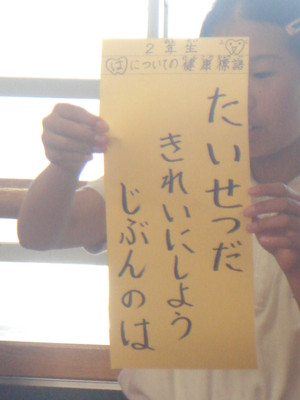 2年生
はについての健康標語
たいせつだ
きれいにしよう
じぶんのは